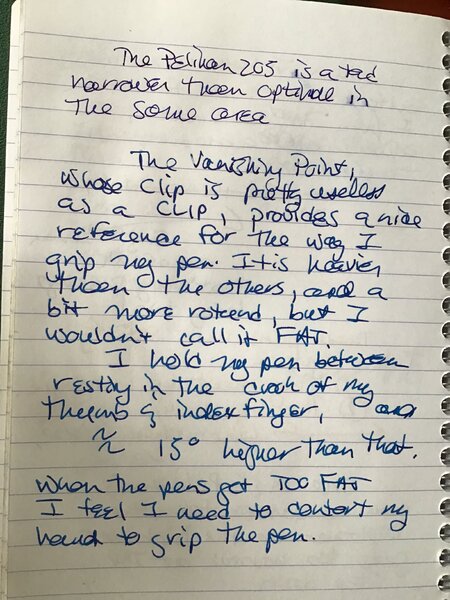 The Pelikan 205 is a tad
narrower than optimal in
the same area
The Vanishing Point,
whose clip is pretty useless
as a CLIP, provides a nice
reference for the way I
grip my pen. It is heavier
than the others, and a
bit more rotund, but I
wouldn't call it FAT.
I hold my pen between
resting in the crook of my
thumb & index finger, and
≈ 15° higher than that.
When the pens get TOO FAT
I feel I need to contort my
hand to grip the pen.